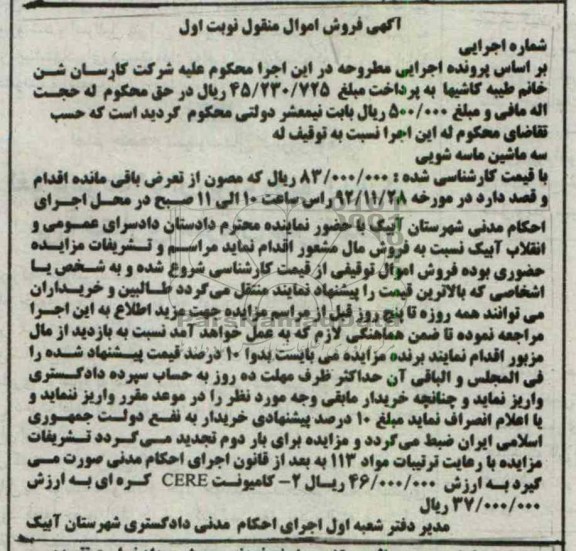 آگهی فروش اموال منقول نوبت اول
شماره اجرایی
بر اساس پرونده اجرایی مطروحه در این اجرا محکوم علیه شرکت کارسان شن
خانم طیبه کاشیها به پرداخت مبلغ ۴۵/۲۳۰/۷۲۵ ریال در حق محکوم له حجت
اله مافی و مبلغ ۵۰۰/۰۰۰ ریال بابت نیمعشر دولتی محکوم گردید است که حسب
تقاضای محکوم له این اجرا نسبت به توقیف له
سه ماشین ماسه شویی
با قیمت کارشناسی شده : ۸۳/۰۰۰/۰۰۰ ریال که مصون از تعرض باقی مانده اقدام
و قصد دارد در مورخه ۹۲/۱۱/۲۸ راس ساعت ۱۰ الی ۱۱ صبح در محل اجرای
احکام مدنی شهرستان آبیک با حضور نماینده محترم دادستان دادسرای عمومی و
انقلاب آبیک نسبت به فروش مال مشعور اقدام نماید مراسم و تشریفات مزایده
حضوری بوده فروش اموال توقیفی از قیمت کارشناسی شروع شده و به شخص یا
اشخاصی که بالاترین قیمت را پیشنهاد نمایند منتقل می گردد طالبین و خریداران
می توانند همه روزه تا پنج روز قبل از مراسم مزایده جهت مزید اطلاع به این اجرا
مراجعه نموده تا ضمن هماهنگی لازم که به عمل خواهد آمد نسبت به بازدید از مال
مزبور اقدام نمایند برنده مزایده می بایست بدوا ۱۰ درصد قیمت پیشنهاد شده را
فی المجلس و الباقی آن حداکثر ظرف مهلت ده روز به حساب سپرده دادگستری
واریز نماید و چنانچه خریدار مابقی وجه مورد نظر را در موعد مقرر واریز ننماید و
یا اعلام انصراف نماید مبلغ ۱۰ درصد پیشنهادی خریدار به نفع دولت جمهوری
اسلامی ایران ضبط می گردد و مزایده برای بار دوم تجدید می گردد تشریفات
مزایده با رعایت ترتیبات مواد ۱۱۳ به بعد از قانون اجرای احکام مدنی صورت می
گیرد به ارزش ۴۶/۰۰۰/۰۰۰ ریال ۲- کامیونت CERE کره ای به ارزش
۳۷/۰۰۰/۰۰۰ ریال
مدیر دفتر شعبه اول اجرای احکام مدنی دادگستری شهرستان آبیک